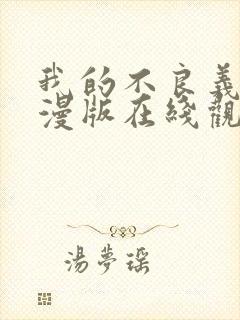 我的不良義
漫版在綫觀
湯夢瑶